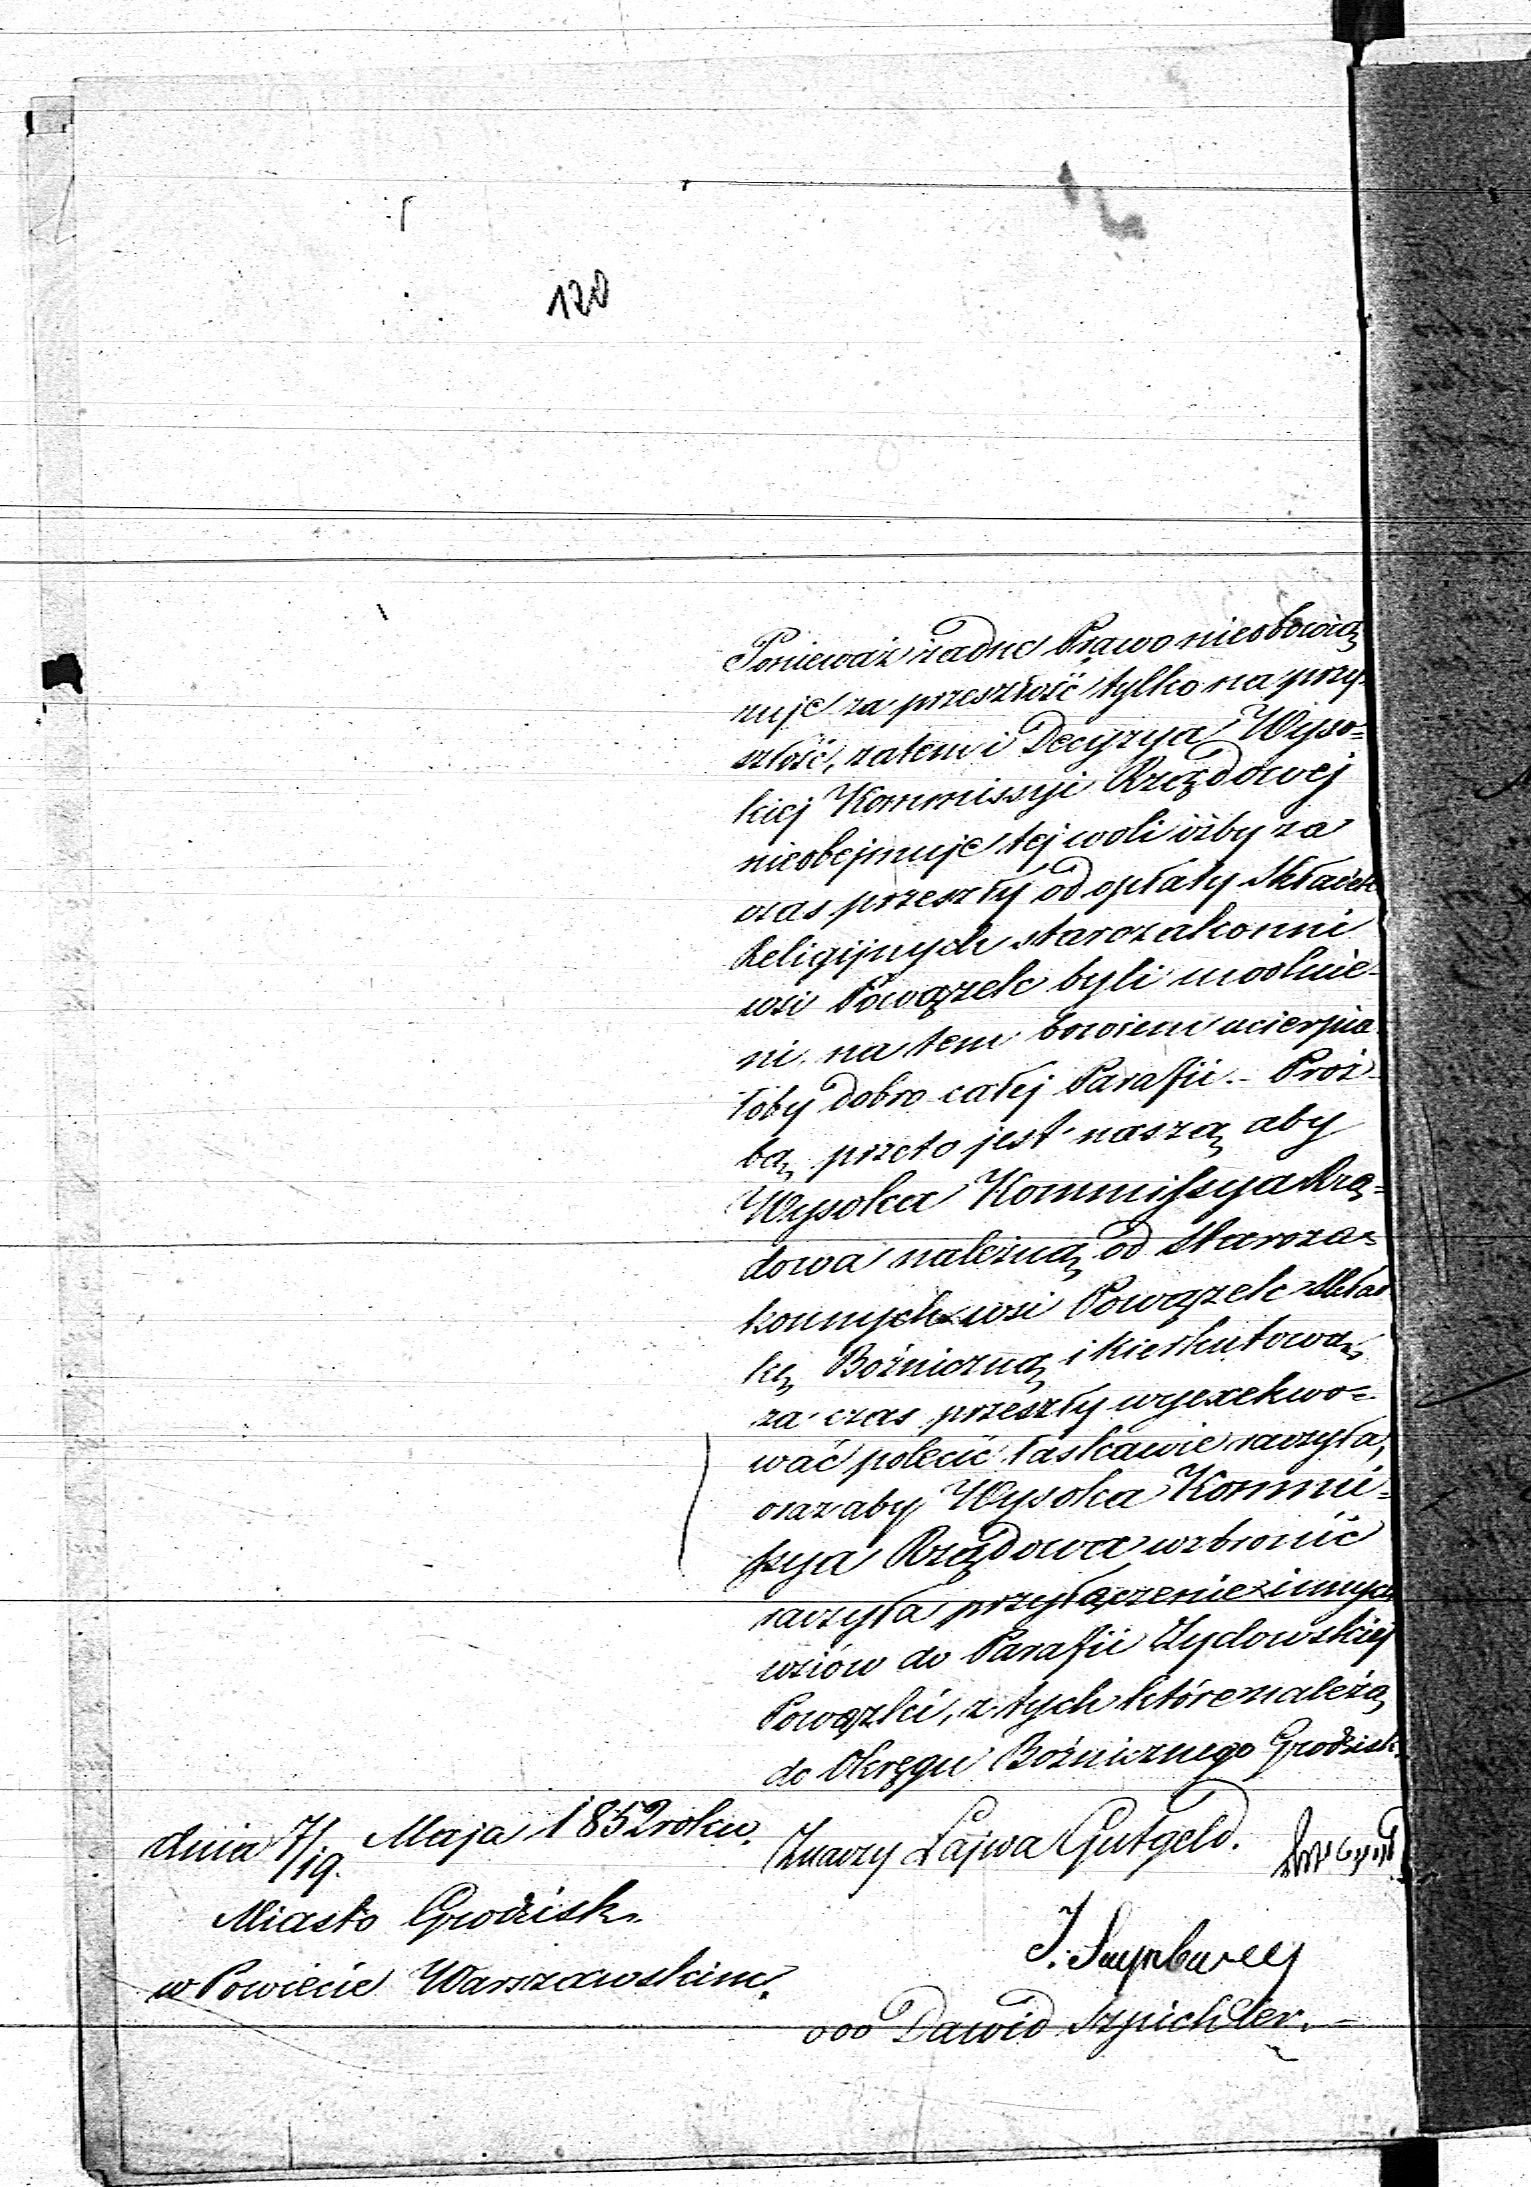 120
Ponieważ żadne Prawo nieobowią
zuje za przeszłość tylko na przy-
szłość, zatem i Decyzya Wyso-
kiej Kommissyi Rządowej
nieobejmuje tej woli iżby za
czas przeszły od opłaty Składek
Religijnych starozakonni
wsi Powązek byli uwolnie-
ni, na tem bowiem ucierpia-
łoby dobro całej Parafii. - Proź-
bą przeto jest naszą aby
Wysoka Kommissya Rzą-
dowa należną od Staroza-
konnych wsi Powązek Skład
kę Bożniczną i kierkutową
za czas przeszły wyexekwo-
wać polecić łaskawie raczyła,
oraz aby Wysoka Kommi-
ssya Rządowa wzbronić
raczyła przyłączenie innych
wsiów do Parafii Żydowskiej
Powązki, z tych które należą
do Okręgu Bożnicznego Grodzisk.
dnia 7/19. Maja 1852 roku.
Miasto Grodzisk.
w Powiecie Warszawskim.
Znaczy Lajwa Gutgeld.
ooo Dawid Szpichler.